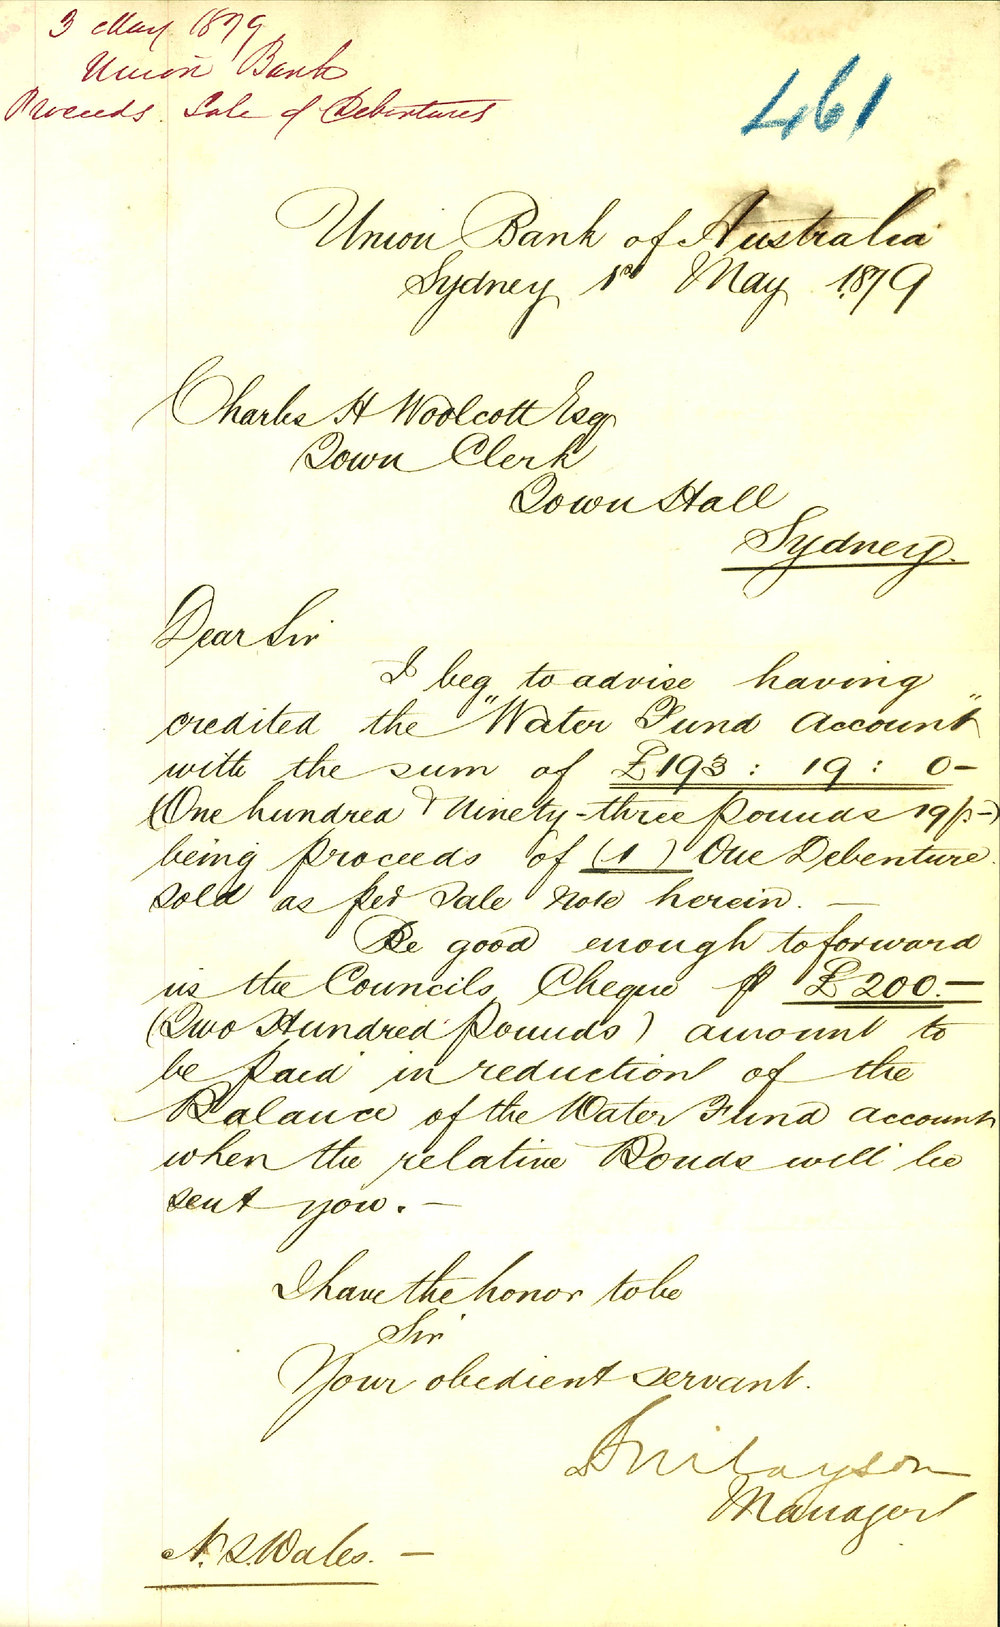 3 May 1879
Union Bank
Proceeds Sale of Debentures
461
Union Bank of Australia
Sydney 1st May 1879
Charles H Woolcott Esq
Town Clerk
Town Hall
Sydney
Dear Sir
I beg to advise having
credited the "Water Fund Account"
with the sum of £193 : 19 : 0 –
(One hundred & Ninety-three pounds 19/-)
being proceeds of (1) One Debenture
sold as per Sale Note herein. –
Be good enough to forward
us the Councils Cheque £200. –
(Two Hundred pounds) amount to
be paid in reduction of the
Balance of the Water Fund account
when the relative Bonds will be
sent you. –
I have the honor to be
Sir
Your obedient servant.
Manager
N. S. Wales. –